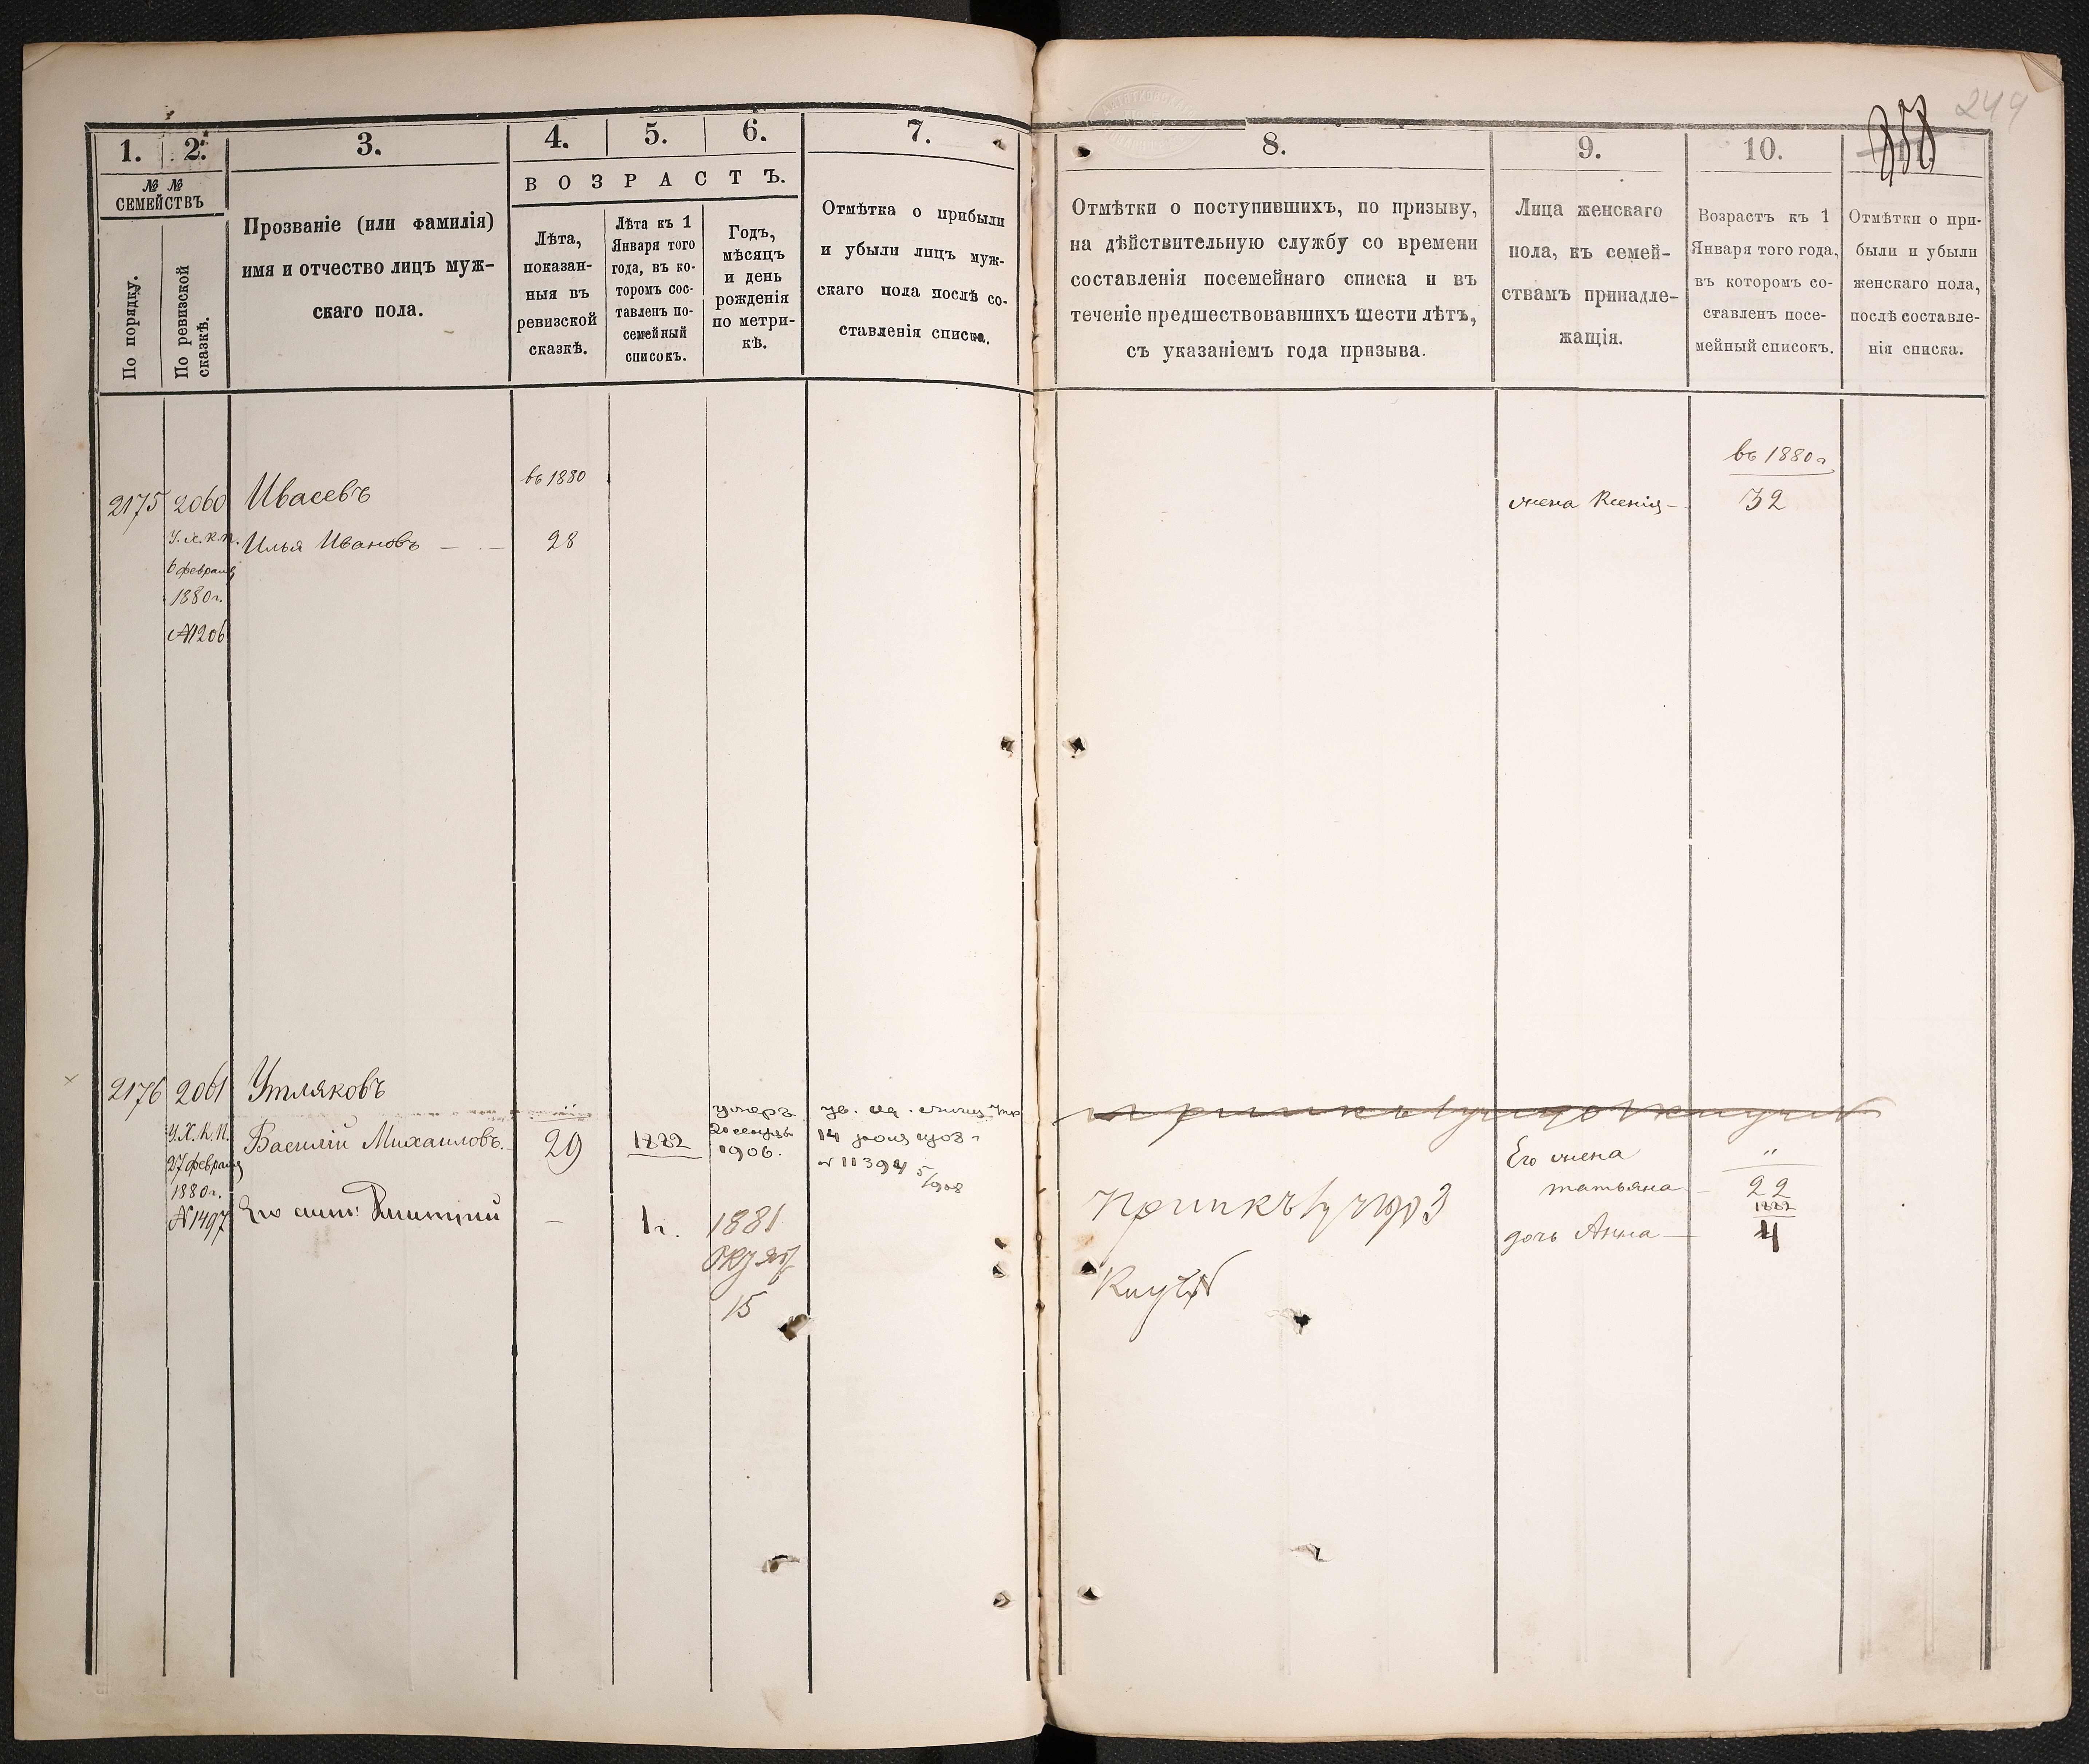 249
358
1.
2.
3.
4.
5.
6.
7.
№ №
СЕМЕЙСТВЪ
По порядку.
По ревизской
сказкѣ.
Прозваніе (или фамилія)
имя и отчество лицъ муж-
скаго пола.
ВОЗРАСТЪ.
Лѣта,
показан-
ныя въ
ревизской
сказкѣ.
Лѣта къ 1
Января того
года, въ ко-
торомъ сос-
тавленъ по-
семейный
списокъ.
Годъ,
мѣсяцъ
и день
рожденія
по метри-
кѣ.
Отмѣтка о прибыли
и убыли лицъ муж-
скаго пола послѣ со-
ставленія списка.
8.
9.
10.
Отмѣтки о поступившихъ, по призыву,
на дѣйствительную службу со времени
составленія посемейнаго списка и въ
теченіе предшествовавшихъ шести лѣтъ,
съ указаніемъ года призыва.
Лица женскаго
пола, къ семей-
ствамъ принадле-
жащія.
Возрастъ къ 1
Января того года,
въ которомъ со-
ставленъ посе-
мейный списокъ.
Отмѣтки о при-
были и убыли
женскаго пола,
послѣ составле-
нія списка.
2175
2060
У.Х.К.П.
6 февраля
1880 г.
№ 1206
Ивасевъ
Илья Ивановъ — . —
въ 1880
28
жена Ксенія —
въ 1880 г
32
2176
2061
У.Х.К.П.
27 февраля
1880 г.
№ 1497
Утляковъ
Василій Михаиловъ. —
29
1882
умеръ
1906.
14
№ 11394 5/908
Его сынъ: Дмитрій
—
1 г.
1881
Октяб
15
Его жена
татьяна —
"
22
1882
дочь Анна —
4